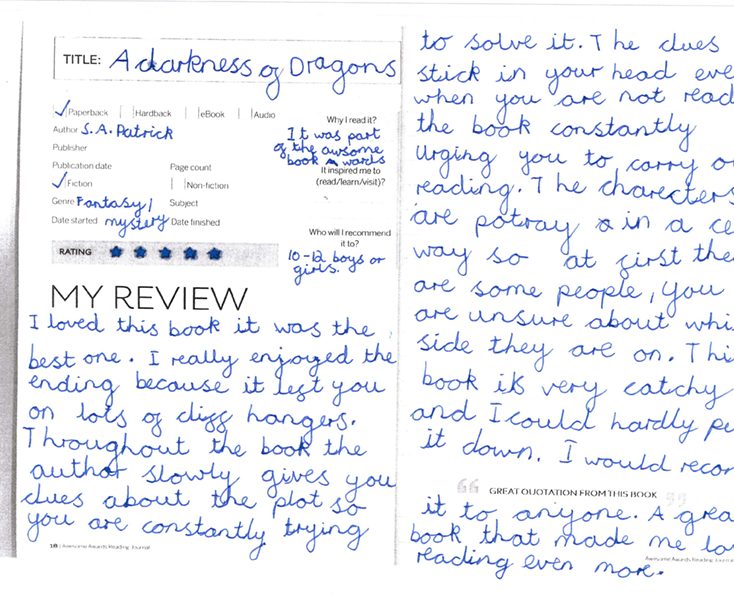 TITLE: A darkness of Dragons
Paperback Hardback eBook Audio
Author S.A. Patrick
Publisher
Publication date Page count
Fiction Non-fiction
Genre Fantasy/ Subject
Date started mystery Date finished
RATING
Why I read it?
It was part
of the awsome
book wards
It inspired me to
(read/learn/visit)?
Who will I recommend
it to?
10-12 boys or
girls.
MY REVIEW
I loved this book it was the
best one. I really enjoyed the
ending because it left you
on lots of cliff hangers.
Throughout the book the
author slowly gives you
clues about the plot so
you are constantly trying
18 | Awesome Awards Reading Journal
to solve it. The clues
stick in your head eve
when you are not read
the book constantly
urging you to carry o
reading. The charecters
are potray in a ce
way so at first the
are some people, you
are unsure about whi
side they are on. Thi
book is very catchy
and I could hardly pu
it down. I would recom
GREAT QUOTATION FROM THIS BOOK
it to anyone. A grea
book that made me lo
Awesome Awards Reading Journal
reading even more.